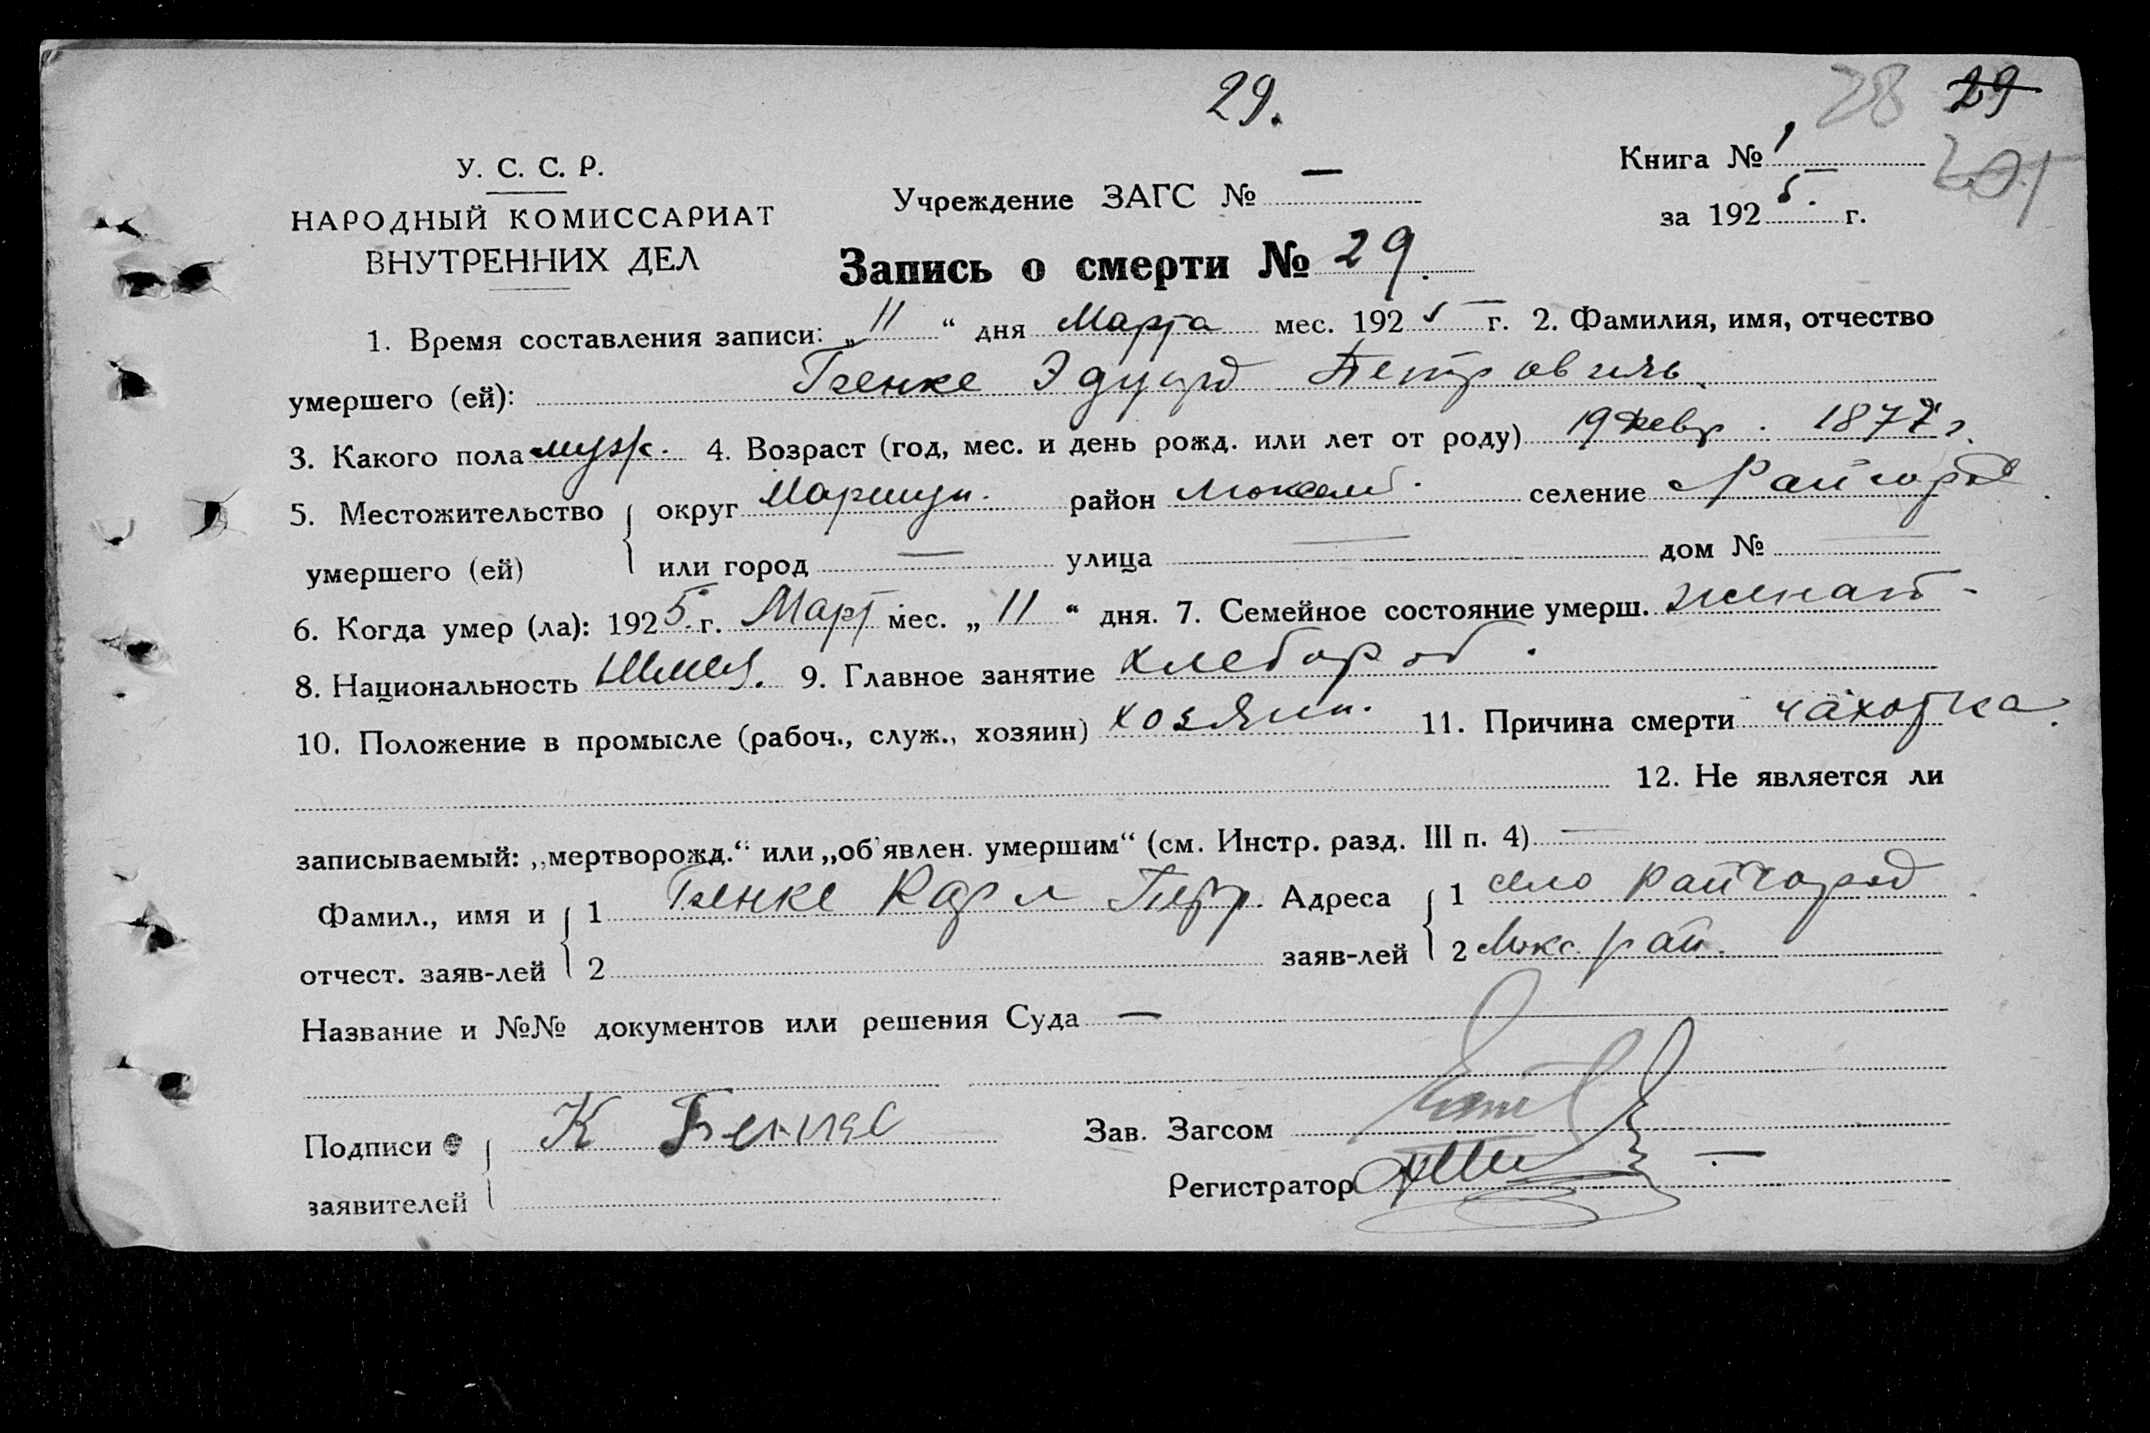 29.
28 29
У. С. С. Р.
НАРОДНЫЙ КОМИССАРИАТ
ВНУТРЕННИХ ДЕЛ
Учреждение ЗАГС № —
Книга № 1
за 1925 г.
Запись о смерти № 29.
1. Время составления записи: „11“ дня Марта мес. 1925 г. 2. Фамилия, имя, отчество
умершего (ей): Бенке Эдуард Петрович
3. Какого пола муж. 4. Возраст (год, мес. и день рожд. или лет от роду) 19 Февр. 1877 г.
5. Местожительство умершего (ей) { округ Мариуп. район Люксемб. селение Райгород
или город — улица — дом № —
6. Когда умер (ла): 1925 г. Март мес. „11“ дня. 7. Семейное состояние умерш. женат
8. Национальность 9. Главное занятие хлебороб.
10. Положение в промысле (рабоч., служ., хозяин) хозяин. 11. Причина смерти чахотка.
12. Не является ли
записываемый: „мертворожд.“ или „об'явлен. умершим“ (см. Инстр. разд. III п. 4) —
Фамил., имя и отчест. заяв-лей { 1 Бенке Карл Петр. Адреса заяв-лей { 1 село Райгород.
2 2 Люкс. рай.
Название и №№ документов или решения Суда —
Подписи заявителей { К Бенке
Зав. Загсом
Регистратор